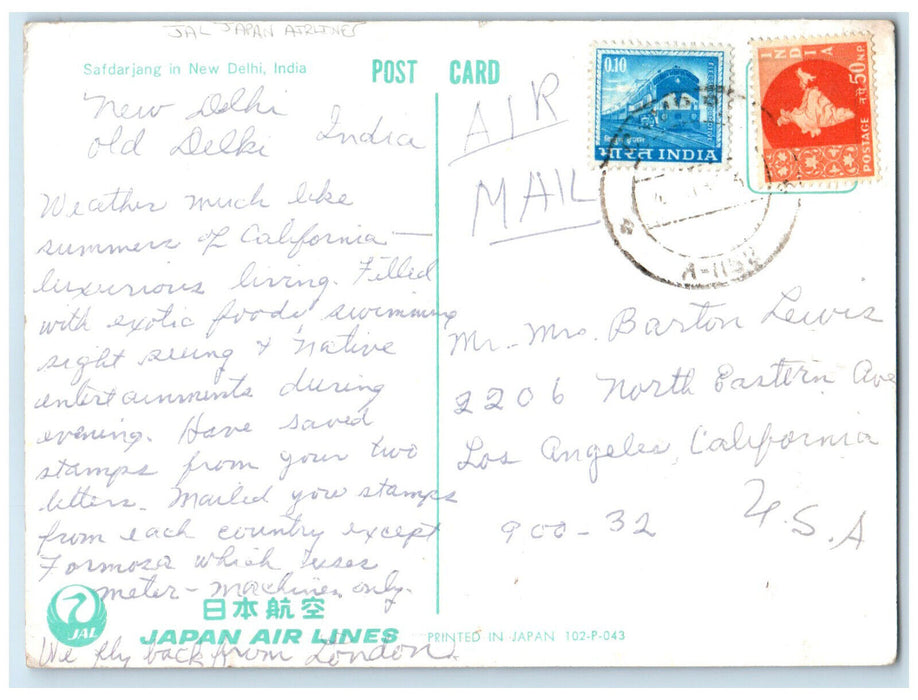 JAL JAPAN AIRLINES
Safdarjang in New Delhi, India
POST CARD
New Delhi
old Delhi India
AIR
MAIL
0.10
भारत INDIA
INDIA
50 N.P.
नये
POSTAGE
A-1152
Weather much like
summers of California —
luxurious living. Filled
with exotic foods, swimming
sight seeing & native
entertainments during
evening. Have saved
stamps from your two
letters. Mailed you stamps
from each country except
Formosa which uses
meter-machines only.
We fly back from London.
Mr.-Mrs. Barton Lewis
2206 North Eastern Ave
Los Angeles, California
900-32 U.S.A
JAL
日本航空
JAPAN AIR LINES
PRINTED IN JAPAN 102-P-043